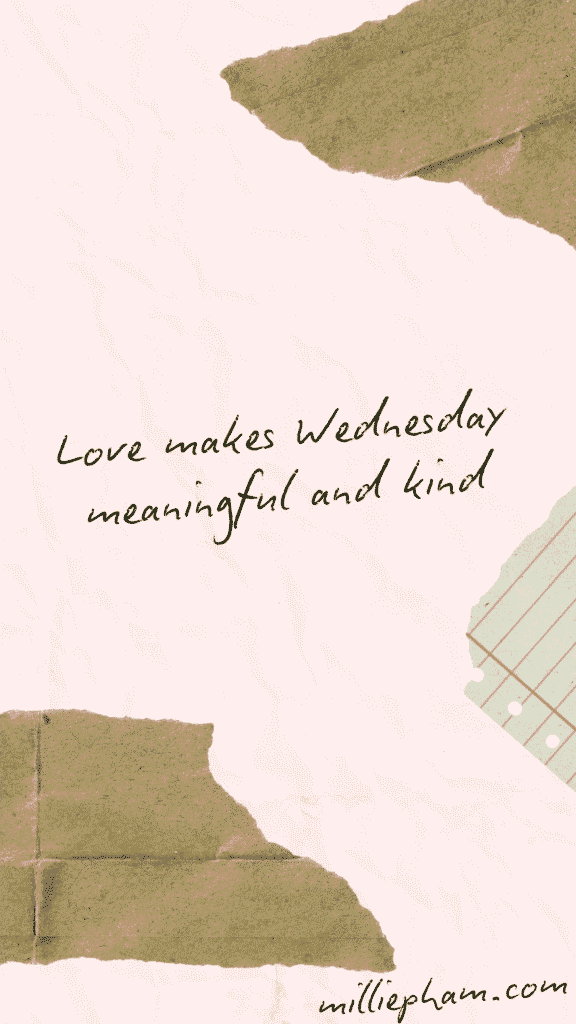 Love makes Wednesday
meaningful and kind
milliepham.com